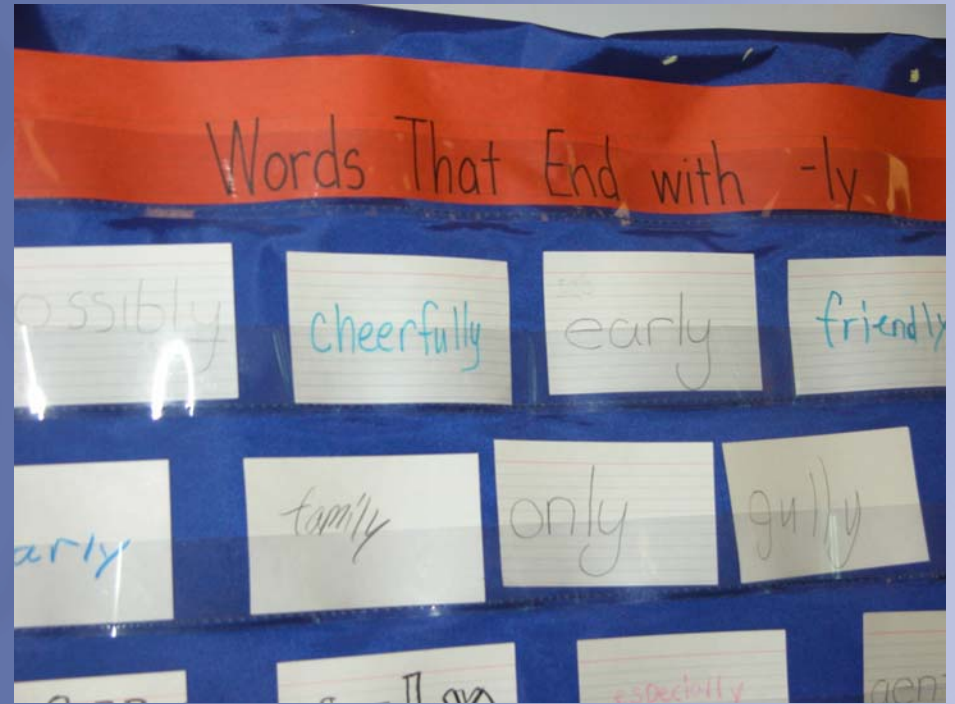 Words That End with -ly
ossibly cheerfully early friendly
arly family only gully
especially